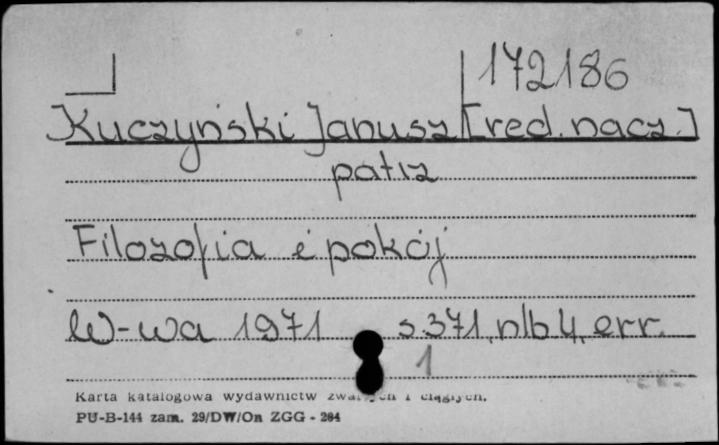 172186
Kuczyński Janusz [red. nacz.]
patrz
Filozofia i pokój
W-wa 1971 s. 371, nlb 4, err.
1
Karta katalogowa wydawnictw zwartych i ciągłych.
PU-B-144 zam. 29/DW/On ZGG - 284